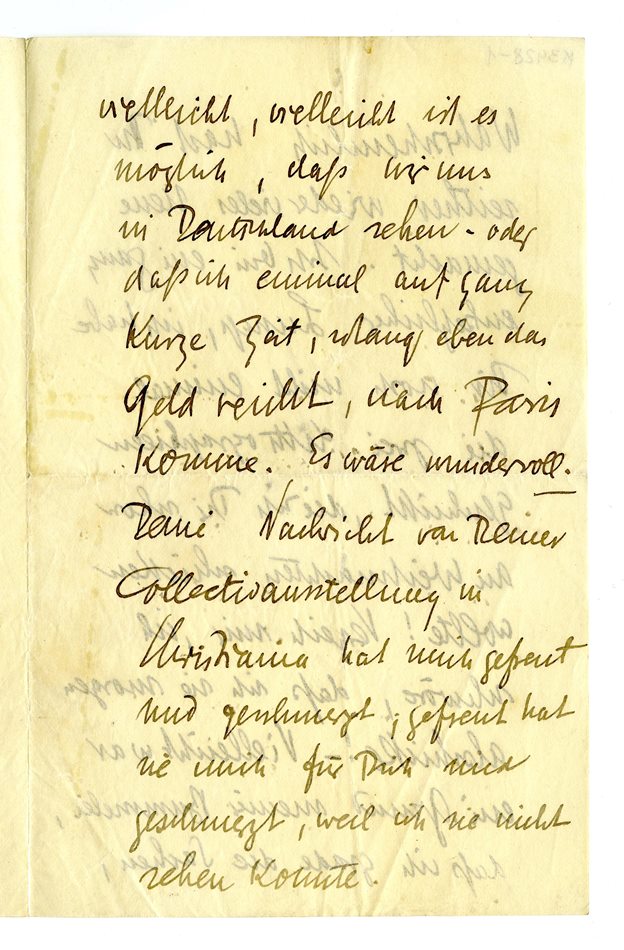 K3428-1
vielleicht, vielleicht ist es
möglich, daß wir uns
in Deutschland sehen - oder
daß ich einmal auf ganz
kurze Zeit, solang eben das
Geld reicht, nach Paris
komme. Es wäre wundervoll.
Deine Nachricht von Deiner
Collectivausstellung in
Christiania hat mich gefreut
und geschmerzt, gefreut hat
sie mich für Dich und
geschmerzt, weil ich sie nicht
sehen konnte.